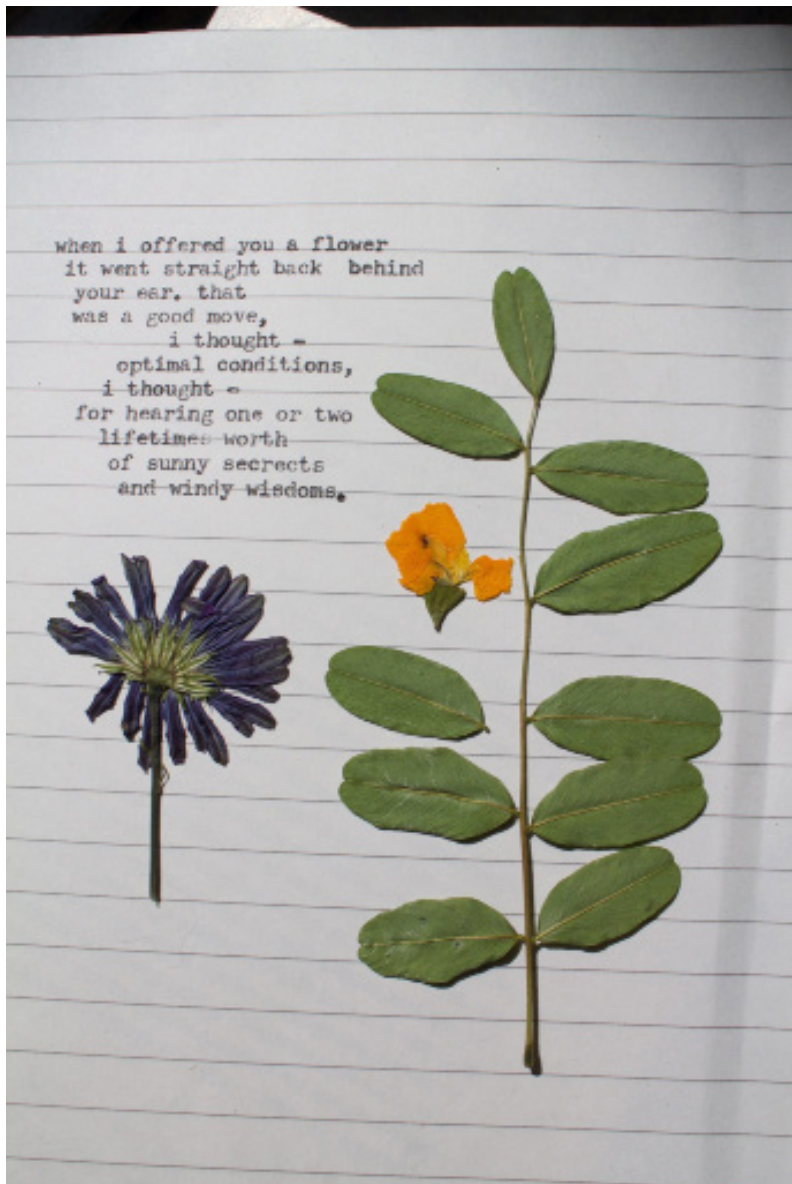 when i offered you a flower
it went straight back behind
your ear. that
was a good move,
i thought -
optimal conditions,
i thought -
for hearing one or two
lifetimes worth
of sunny secrects
and windy wisdoms.